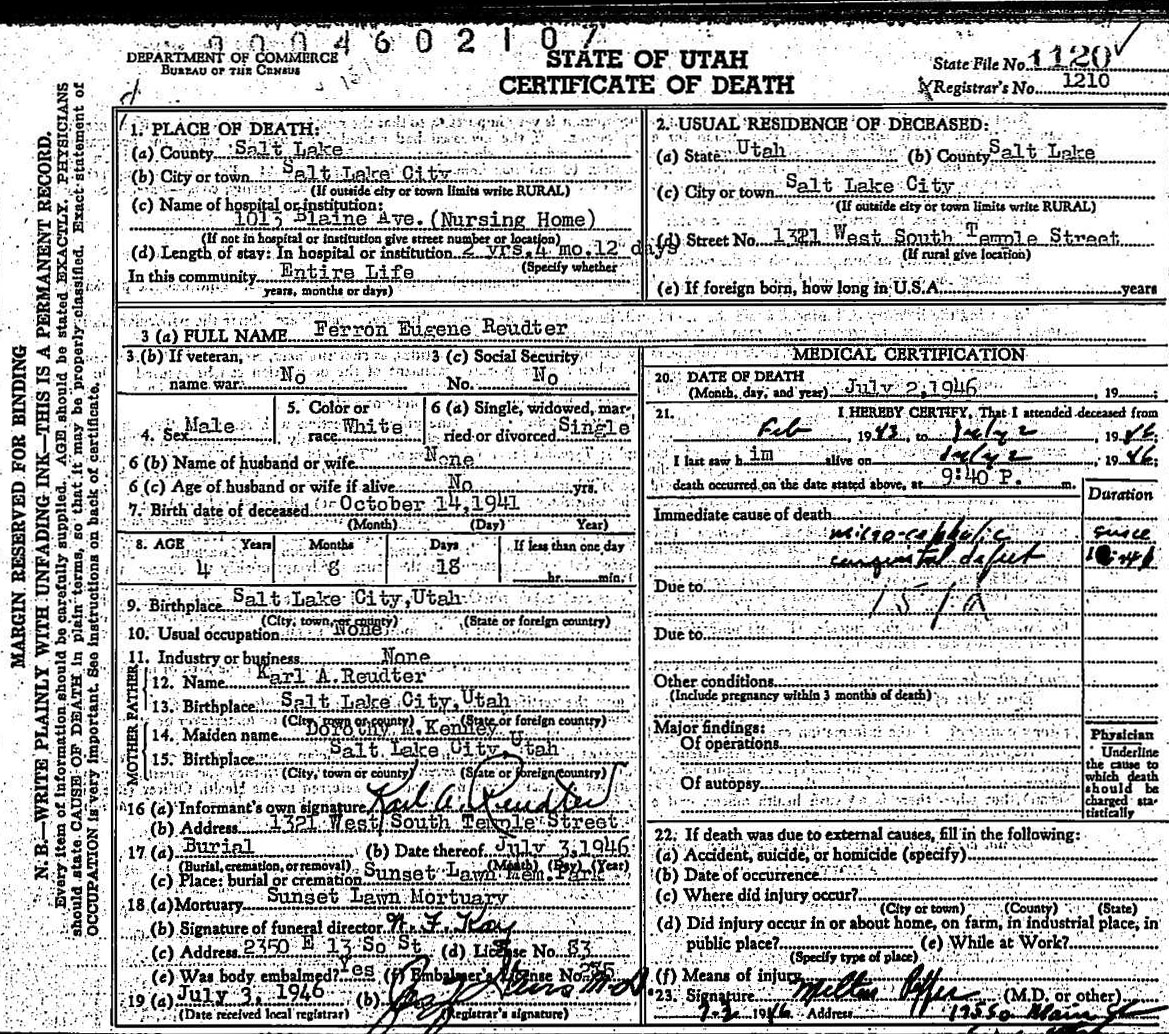 0004602107
DEPARTMENT OF COMMERCE
BUREAU OF THE CENSUS
STATE OF UTAH
CERTIFICATE OF DEATH
State File No. 1120
Registrar's No. 1210
MARGIN RESERVED FOR BINDING
N. B.—WRITE PLAINLY WITH UNFADING INK—THIS IS A PERMANENT RECORD.
Every item of information should be carefully supplied. AGE should be stated EXACTLY. PHYSICIANS
should state CAUSE OF DEATH in plain terms, so that it may be properly classified. Exact statement of
OCCUPATION is very important. See instructions on back of certificate.
1. PLACE OF DEATH:
(a) County Salt Lake
(b) City or town Salt Lake City
(If outside city or town limits write RURAL)
(c) Name of hospital or institution:
1013 Blaine Ave. (Nursing Home)
(If not in hospital or institution give street number or location)
(d) Length of stay: In hospital or institution 2 yrs.4 mo.12 days
(Specify whether
In this community Entire Life
years, months or days)
2. USUAL RESIDENCE OF DECEASED:
(a) State Utah (b) County Salt Lake
(c) City or town Salt Lake City
(If outside city or town limits write RURAL)
(d) Street No. 1321 West South Temple Street
(If rural give location)
(e) If foreign born, how long in U.S.A. years
3 (a) FULL NAME Ferron Eugene Reudter
3. (b) If veteran,
name war No
3 (c) Social Security
No. No
4. Sex Male
5. Color or
race White
6 (a) Single, widowed, mar-
ried or divorced Single
6 (b) Name of husband or wife None
6 (c) Age of husband or wife if alive No yrs.
7. Birth date of deceased October 14,1941
(Month) (Day) Year)
8. AGE Years Months Days If less than one day
4 8 18 hr. min.
9. Birthplace Salt Lake City,Utah
(City, town, or county) (State or foreign country)
10. Usual occupation None
11. Industry or business None
FATHER
12. Name Karl A.Reudter
13. Birthplace Salt Lake City,Utah
(City, town or county) (State or foreign country)
MOTHER
14. Maiden name Dorothy M.Kenney
15. Birthplace Salt Lake City,Utah
(City, town or county) (State or foreign country)
16 (a) Informant's own signature Karl A. Reudter
(b) Address 1321 West South Temple Street
17 (a) Burial (b) Date thereof July 3,1946
(Burial, cremation, or removal) (Month) (Day) (Year)
(c) Place: burial or cremation Sunset Lawn Mem.Park
18 (a) Mortuary Sunset Lawn Mortuary
(b) Signature of funeral director N. F. Kay
(c) Address 2350 E 13 So St (d) License No. 83
(e) Was body embalmed? Yes (f) Embalmer's License No.
19 (a) July 3, 1946 (b)
(Date received local registrar) (Registrar's signature)
MEDICAL CERTIFICATION
20. DATE OF DEATH
(Month, day, and year) July 2,1946, 19
21. I HEREBY CERTIFY, That I attended deceased from
Feb, 1943, to July 2, 1946;
I last saw him alive on July 2, 1946;
death occurred on the date stated above, at 9:40 P. m.
Duration
Immediate cause of death
microcephalic since
congenital defect
Due to 157a
Due to
Other conditions
(Include pregnancy within 3 months of death)
Major findings:
Of operations
Of autopsy
Physician
Underline
the cause to
which death
should be
charged sta-
tistically
22. If death was due to external causes, fill in the following:
(a) Accident, suicide, or homicide (specify)
(b) Date of occurrence
(c) Where did injury occur?
(City or town) (County) (State)
(d) Did injury occur in or about home, on farm, in industrial place, in
public place? (e) While at Work?
(Specify type of place)
(f) Means of injury
23. Signature Milton Pepper (M.D. or other)
1946 Address Main